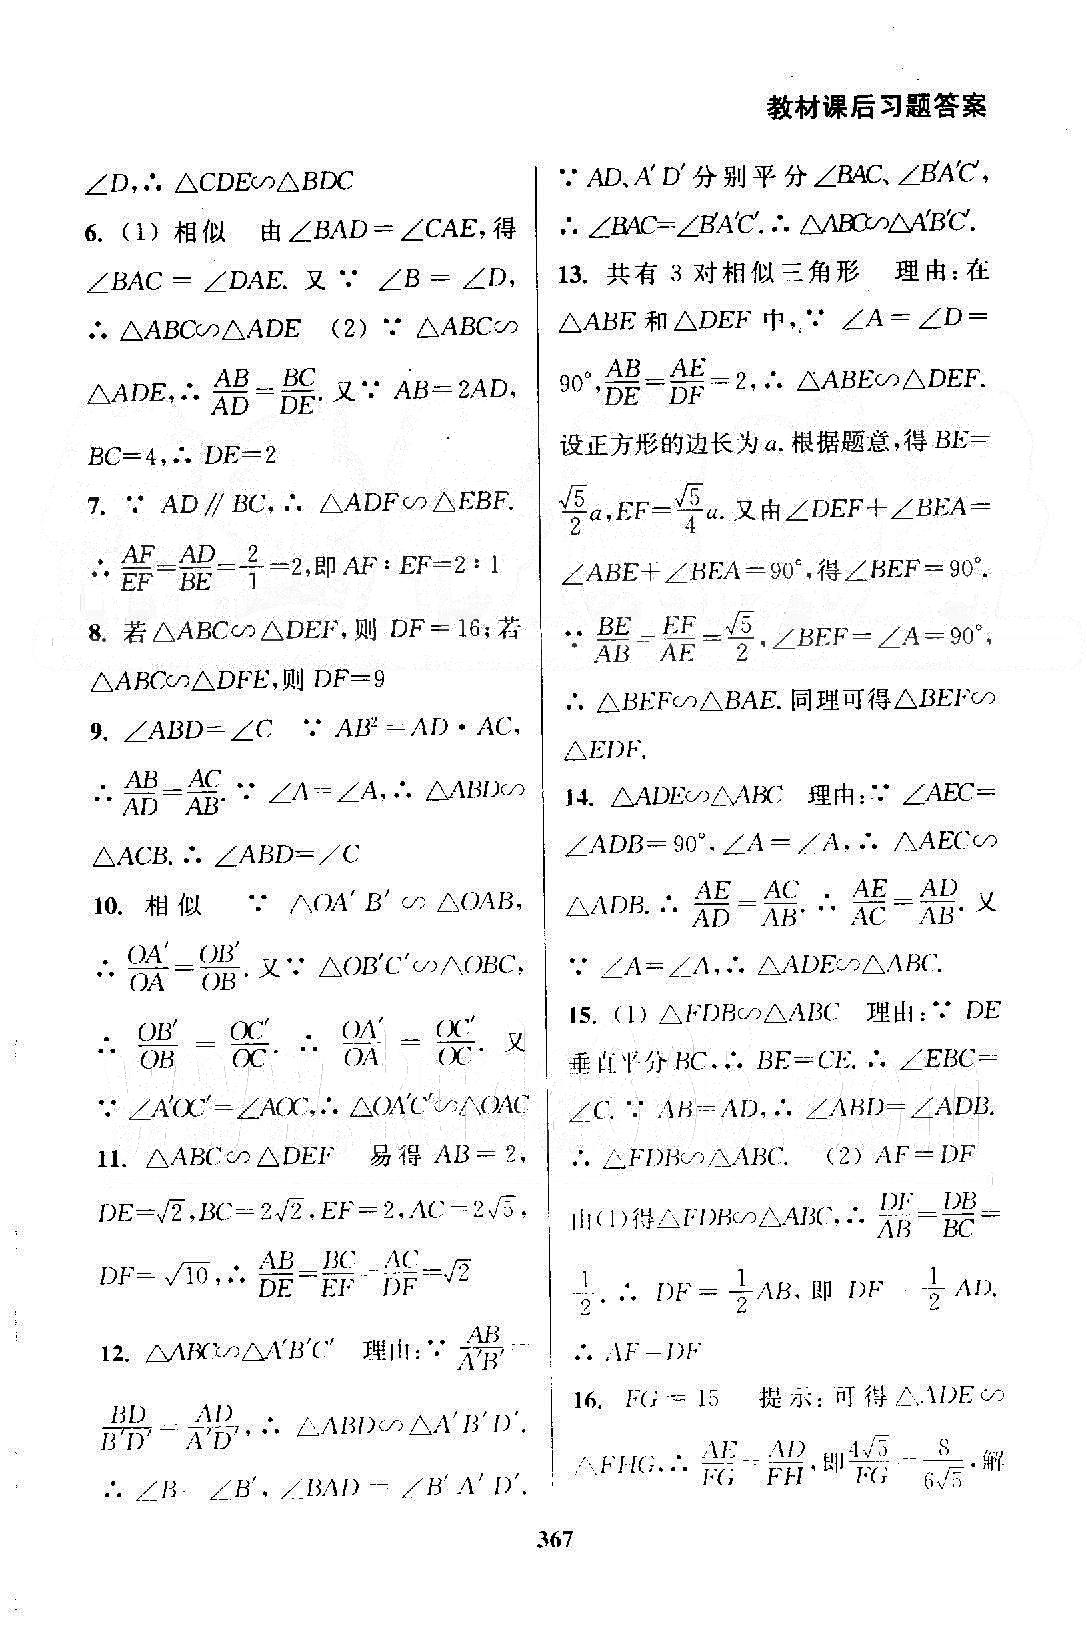 教材课后习题答案
∠D,∴ △CDE∽△BDC
6. (1) 相似 由∠BAD=∠CAE,得
∠BAC = ∠DAE. 又 ∵ ∠B = ∠D,
∴ △ABC∽△ADE (2) ∵ △ABC∽
△ADE,∴ AB/AD=BC/DE. 又∵ AB=2AD,
BC=4,∴ DE=2
7. ∵ AD∥BC,∴ △ADF∽△EBF.
∴ AF/EF=AD/BE=2/1=2,即 AF∶EF=2∶1
8. 若△ABC∽△DEF,则 DF=16;若
△ABC∽△DFE,则 DF=9
9. ∠ABD=∠C ∵ AB²=AD·AC,
∴ AB/AD=AC/AB. ∵ ∠A=∠A,∴ △ABD∽
△ACB. ∴ ∠ABD=∠C
10. 相似 ∵ △OA′B′∽△OAB,
∴ OA′/OA=OB′/OB. 又∵ △OB′C′∽△OBC,
∴ OB′/OB = OC′/OC. ∴ OA′/OA = OC′/OC. 又
∵ ∠A′OC′=∠AOC,∴ △OA′C′∽△OAC
11. △ABC∽△DEF 易得 AB=2,
DE=√2,BC=2√2,EF=2,AC=2√5,
DF=√10,∴ AB/DE=BC/EF=AC/DF=√2
12. △ABC∽△A′B′C′ 理由:∵ AB/A′B′=
BD/B′D′=AD/A′D′,∴ △ABD∽△A′B′D′.
∴ ∠B=∠B′,∠BAD=∠B′A′D′.
∵ AD、A′D′分别平分∠BAC、∠B′A′C′,
∴ ∠BAC=∠B′A′C′.∴ △ABC∽△A′B′C′.
13. 共有 3 对相似三角形 理由:在
△ABE 和△DEF 中,∵ ∠A=∠D=
90°,AB/DE=AE/DF=2,∴ △ABE∽△DEF.
设正方形的边长为a. 根据题意,得BE=
√5/2a,EF=√5/4a. 又由∠DEF+∠BEA=
∠ABE+∠BEA=90°,得∠BEF=90°.
∵ BE/AB=EF/AE=√5/2,∠BEF=∠A=90°,
∴ △BEF∽△BAE. 同理可得△BEF∽
△EDF.
14. △ADE∽△ABC 理由:∵ ∠AEC=
∠ADB=90°,∠A=∠A,∴ △AEC∽
△ADB. ∴ AE/AD=AC/AB. ∴ AE/AC=AD/AB. 又
∵ ∠A=∠A,∴ △ADE∽△ABC.
15. (1) △FDB∽△ABC 理由:∵ DE
垂直平分BC,∴ BE=CE. ∴ ∠EBC=
∠C. ∵ AB=AD,∴ ∠ABD=∠ADB.
∴ △FDB∽△ABC. (2) AF=DF
由(1)得△FDB∽△ABC,∴ DF/AB=DB/BC=
1/2. ∴ DF=1/2AB,即 DF=1/2AD.
∴ AF=DF
16. FG=15 提示:可得△ADE∽
△FHG,∴ AE/FG=AD/FH,即4√5/FG=8/6√5. 解
367